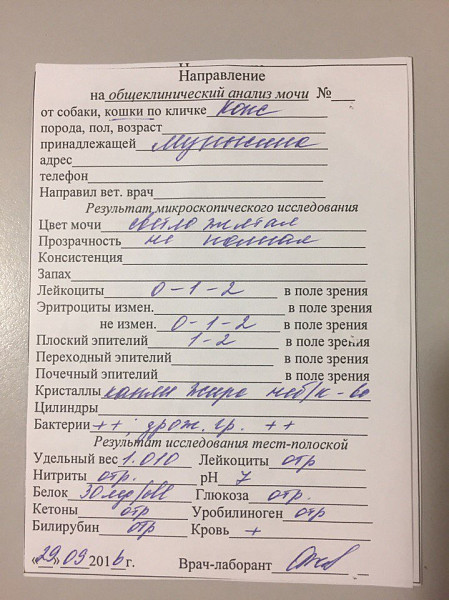 Направление
на общеклинический анализ мочи №___
от собаки, кошки по кличке Кокс
порода, пол, возраст
принадлежащей
адрес
телефон
Направил вет. врач
Результат микроскопического исследования
Цвет мочи светло желтая
Прозрачность не полная
Консистенция
Запах
Лейкоциты 0-1-2 в поле зрения
Эритроциты измен. в поле зрения
не измен. 0-1-2 в поле зрения
Плоский эпителий 1-2 в поле зрения
Переходный эпителий в поле зрения
Почечный эпителий в поле зрения
Кристаллы капли жира неб/к-во
Цилиндры
Бактерии ++ дрож. гр. ++
Результат исследования тест-полоской
Удельный вес 1.010 Лейкоциты отр
Нитриты отр. рН 7
Белок 30 мг/dl Глюкоза отр.
Кетоны отр Уробилиноген отр
Билирубин отр Кровь +
«29» 09 2016г. Врач-лаборант